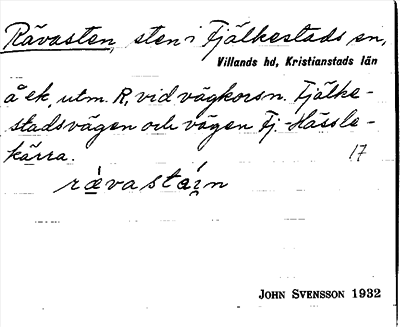 Rävasten, sten i Fjälkestads sn,
Villands hd, Kristianstads län
å ek. utm. R, vid vägkorsn. Fjälke-
stadsvägen och vägen Fj.-Hässle-
kärra. 17
rävastain
JOHN SVENSSON 1932